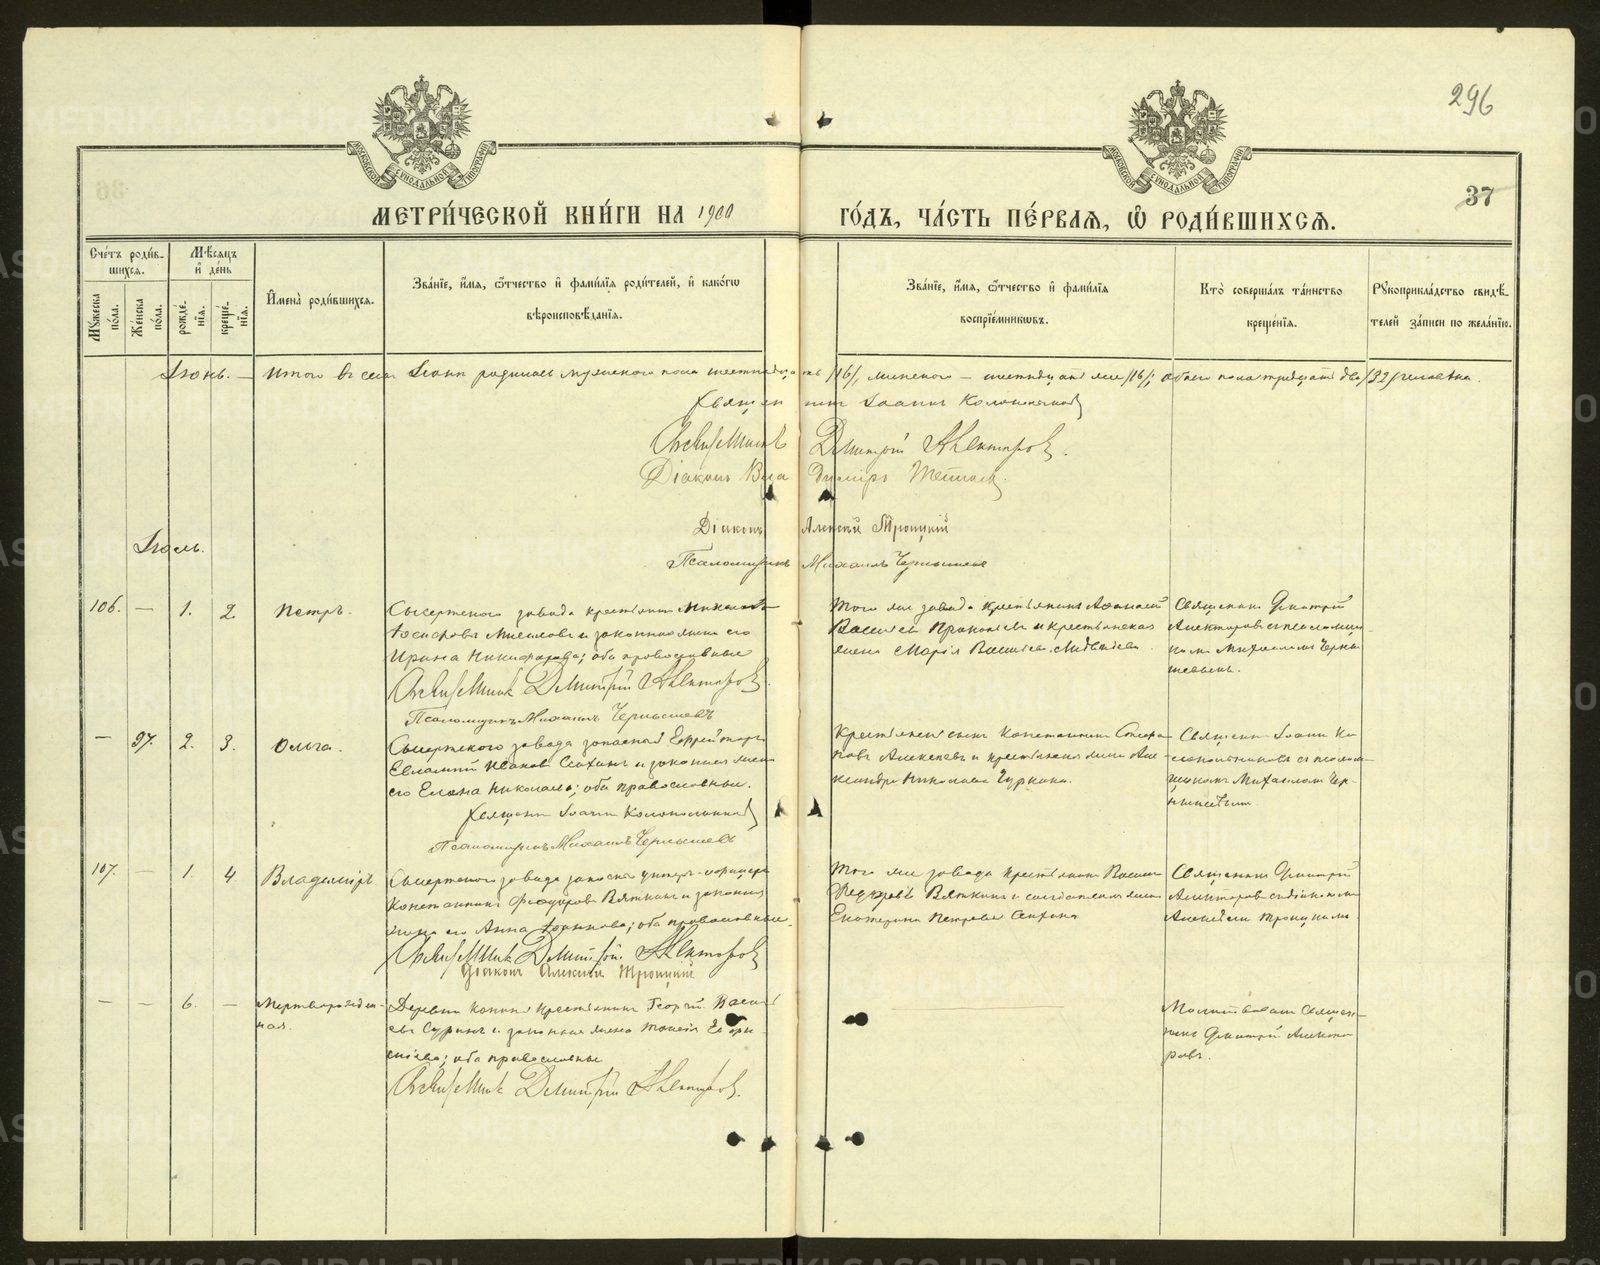 296
37
МЕТРИ́ЧЕСКОЙ КНИ́ГИ НА 1900 ГО́ДЪ, ЧА́СТЬ ПЕ́РВАѦ, Ѿ РОДИ́ВШИХСѦ.
Сче́тъ роди́в-
шихся.
Мѣ́сяцъ
и҆ де́нь
Мꙋ́жеска по́ла.
Же́нска по́ла.
рожде́нїѧ.
креще́нїѧ.
И҆мена̀ роди́вшихся.
Зва́нїе, и҆́мя, ѻ҆́тчество и҆ фами́лїѧ роди́телей, и҆ како́гѡ
вѣроисповѣ́данїѧ.
Зва́нїе, и҆́мя, ѻ҆́тчество и҆ фами́лїѧ
воспрїе́мникѡвъ.
Кто̀ соверша́лъ та́инство
креще́нїѧ.
Рꙋкоприкла́дство свидѣ́-
телей за́писи по жела́нїю.
Іюнь. — Итого въ семъ Іюнѣ родилось мужескаго пола шестнадцать /16/, женскаго — шестнадцать /16/; обоего пола тридцать два /32/ человѣка.
Священникъ Іоаннъ Колокольниковъ
Священникъ Димитрій Алекторовъ.
Діаконъ Владиміръ
Діаконъ Алексѣй Троицкій
Іюль.
Псаломщикъ Михаилъ Чернышевъ
106. — 1. 2. Петръ.
Сысертскаго завода крестьянинъ
и законная жена его
Ирина Никифорова; оба православные
Священникъ Димитрій Алекторовъ.
Псаломщикъ Михаилъ Чернышевъ
Того же завода крестьянинъ Аѳанасій
Васильевъ и крестьянская
жена Марія Васильева
Священникъ Димитрій
Алекторовъ съ псаломщи-
комъ Михаиломъ Черны-
шевымъ.
— 97. 2. 3. Ольга.
Сысертскаго завода запасный Ефрейторъ
Евлампій Ивановъ и законная жена
его Елена Николаева; оба православные.
Священникъ Іоаннъ Колокольниковъ
Псаломщикъ Михаилъ Чернышевъ
Крестьянскій сынъ Константинъ
Алексѣевъ и крестьянская жена Але-
ксандра Николаева Чуркина.
Священникъ Іоаннъ Ко-
локольниковъ съ псалом-
щикомъ Михаиломъ Чер-
нышевымъ
107. — 1. 4. Владиміръ
Сысертскаго завода запасный унтеръ-офицеръ
Константинъ Ѳеодоровъ Вяткинъ и законная
жена его Анна; оба православные.
Священникъ Димитрій Алекторовъ
Діаконъ Алексѣй Троицкій
Того же завода крестьянинъ
Ѳедоровъ Вяткинъ и солдатская жена
Екатерина Петрова
Священникъ Димитрій
Алекторовъ съ діакономъ
Алексѣемъ Троицкимъ
— — 6. — Мертворожден-
ная.
Деревни крестьянинъ Георгій Василь-
евъ и законная жена
оба православные
Священникъ Димитрій Алекторовъ.
Молитвовалъ Священ-
никъ Димитрій Алекто-
ровъ.
METRIKI.GASO-URAL.RU